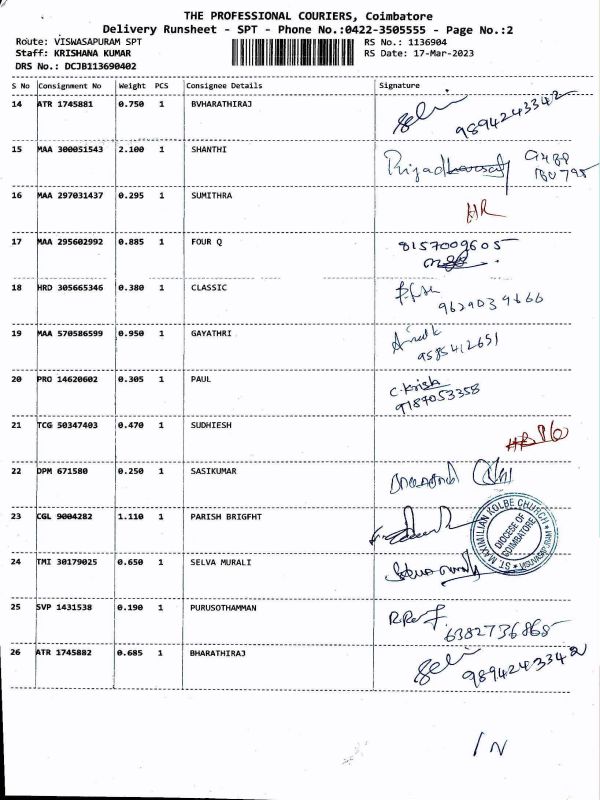 THE PROFESSIONAL COURIERS, Coimbatore
Delivery Runsheet - SPT - Phone No.:0422-3505555 - Page No.:2
Route: VISWASAPURAM SPT RS No.: 1136904
Staff: KRISHANA KUMAR RS Date: 17-Mar-2023
DRS No.: DCJB113690402
S No Consignment No Weight PCS Consignee Details Signature
14 ATR 1745881 0.750 1 BVHARATHIRAJ
9894243342
15 MAA 300051543 2.100 1 SHANTHI
16 MAA 297031437 0.295 1 SUMITHRA HR
17 MAA 295602992 0.885 1 FOUR Q 8157009605
18 HRD 305665346 0.380 1 CLASSIC
19 MAA 570586599 0.950 1 GAYATHRI
9585412651
20 PRO 14620602 0.305 1 PAUL C.Krish
9187053358
21 TCG 50347403 0.470 1 SUDHIESH
22 DPM 671580 0.250 1 SASIKUMAR
23 CGL 9004282 1.110 1 PARISH BRIGFHT
ST. MAXIMILIAN KOLBE CHURCH
DIOCESE OF
COIMBATORE
24 TMI 30179025 0.650 1 SELVA MURALI
25 SVP 1431538 0.190 1 PURUSOTHAMMAN
6382736865
26 ATR 1745882 0.685 1 BHARATHIRAJ
9894243342